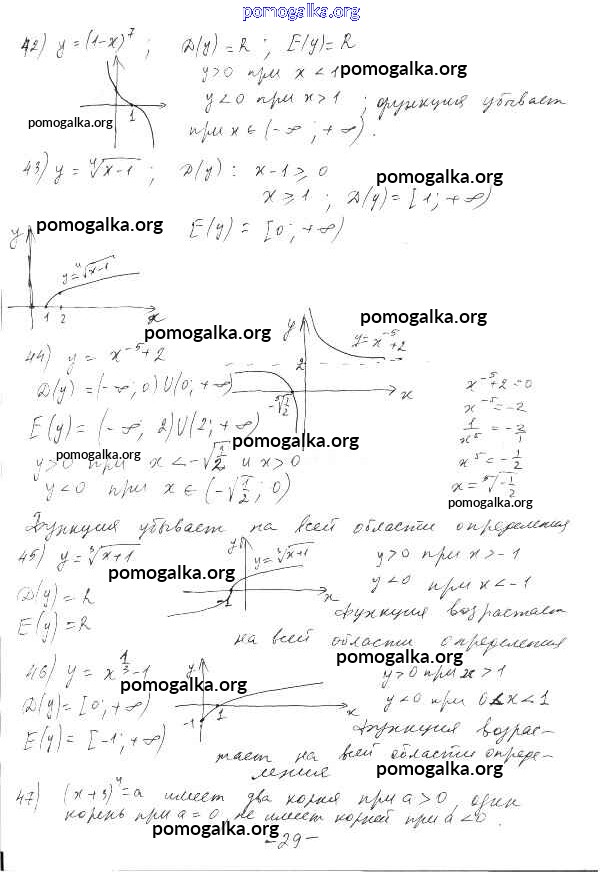 pomogalka.org
42) y = (1-x)^7 ; D(y) = R ; E(y) = R
y>0 при x < 1 pomogalka.org
y<0 при x>1 ; функция убывает
1
pomogalka.org при x ∈ (-∞ ; +∞).
43) y = ⁴√(x-1) ; D(y) : x-1 ≥ 0
pomogalka.org
x ≥ 1 ; D(y) = [1 ; +∞)
pomogalka.org E(y) = [0 ; +∞)
y
y = ⁴√(x-1)
1 2 x
pomogalka.org
pomogalka.org
44) y = x^-5 + 2
y y = x^-5 + 2
2
D(y) = (-∞ ; 0) U (0 ; +∞)
-⁵√(1/2) x
x^-5 + 2 = 0
x^-5 = -2
pomogalka.org
E(y) = (-∞ ; 2) U (2 ; +∞)
1/x^5 = -2/1
pomogalka.org
pomogalka.org
y>0 при x < -√(1/2) и x>0
x^5 = -1/2
y<0 при x ∈ (-√(1/2) ; 0)
x = ⁵√(-1/2)
pomogalka.org
Функция убывает на всей области определения
45) y = ³√(x+1)
y y = ³√(x+1)
-1 x
y>0 при x > -1
pomogalka.org
pomogalka.org
D(y) = R
y<0 при x < -1
E(y) = R
функция возрастает
на всей области определения
pomogalka.org
46) y = x^(1/3) - 1
y
-1 1 x
y>0 при x > 1
pomogalka.org
D(y) = [0 ; +∞)
y<0 при 0 < x < 1
E(y) = [-1 ; +∞)
Функция возрас-
тает на всей области опреде-
ления
pomogalka.org
47) (x+3)^4 = a имеет два корня при a > 0, один
корень при a = 0, не имеет корней при a < 0.
pomogalka.org
-29-